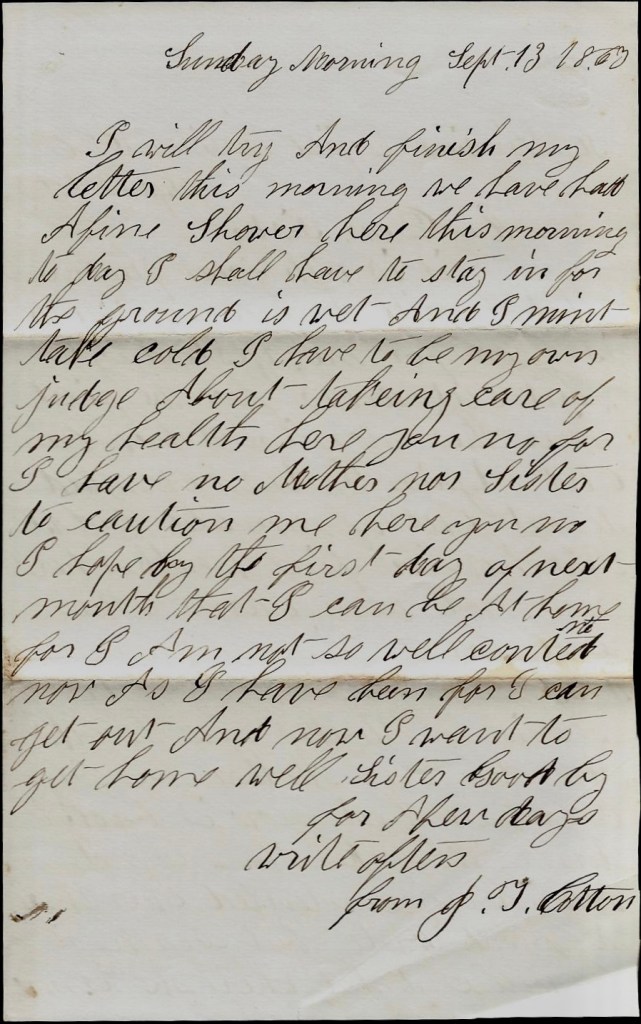 Sunday Morning Sept. 13 1863
I will try And finish my
letter this morning we have had
A fine Shower here this morning
to day I shall have to stay in for
the ground is wet And I mint
take cold I have to be my own
judge About takeing care of
my health here you no for
I have no Mother nor Sister
to caution me here you no
I hope by the first day of next
month that I can be At home
for I Am not so well contented
now As I have been for I can
get out And now I want to
get home well Sister Good by
for A few days
write often
from J. T. Cotton